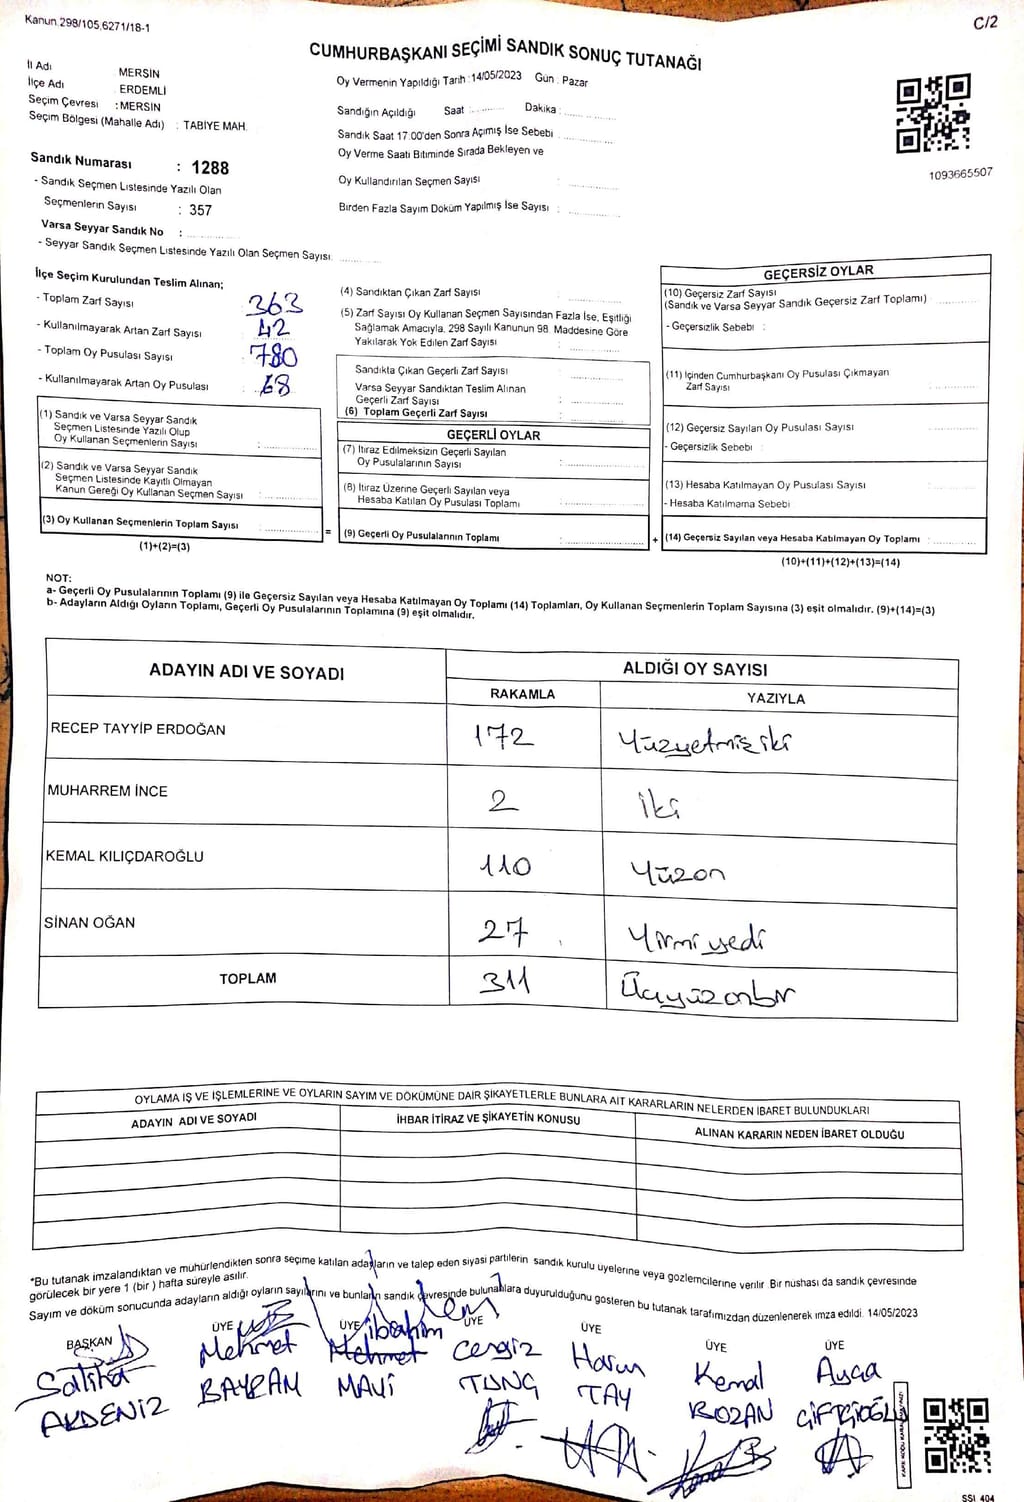 Kanun 298/105,6271/18-1
C/2
CUMHURBAŞKANI SEÇİMİ SANDIK SONUÇ TUTANAĞI
İl Adı MERSİN
İlçe Adı : ERDEMLİ
Seçim Çevresi : MERSİN
Seçim Bölgesi (Mahalle Adı) : TABİYE MAH.
Oy Vermenin Yapıldığı Tarih : 14/05/2023 Gün : Pazar
Sandığın Açıldığı Saat : Dakika :
Sandık Saat 17.00'den Sonra Açımış İse Sebebi
Oy Verme Saati Bitiminde Sırada Bekleyen ve
Oy Kullandırılan Seçmen Sayısı :
Birden Fazla Sayım Döküm Yapılmış İse Sayısı :
1093665507
Sandık Numarası : 1288
- Sandık Seçmen Listesinde Yazılı Olan
Seçmenlerin Sayısı : 357
Varsa Seyyar Sandık No :
- Seyyar Sandık Seçmen Listesinde Yazılı Olan Seçmen Sayısı:
İlçe Seçim Kurulundan Teslim Alınan;
- Toplam Zarf Sayısı 363
- Kullanılmayarak Artan Zarf Sayısı 42
- Toplam Oy Pusulası Sayısı 780
- Kullanılmayarak Artan Oy Pusulası 68
(1) Sandık ve Varsa Seyyar Sandık
Seçmen Listesinde Yazılı Olup
Oy Kullanan Seçmenlerin Sayısı :
(2) Sandık ve Varsa Seyyar Sandık
Seçmen Listesinde Kayıtlı Olmayan
Kanun Gereği Oy Kullanan Seçmen Sayısı :
(3) Oy Kullanan Seçmenlerin Toplam Sayısı :
(1)+(2)=(3)
=
(4) Sandıktan Çıkan Zarf Sayısı :
(5) Zarf Sayısı Oy Kullanan Seçmen Sayısından Fazla İse, Eşitliği
Sağlamak Amacıyla, 298 Sayılı Kanunun 98. Maddesine Göre
Yakılarak Yok Edilen Zarf Sayısı :
Sandıkta Çıkan Geçerli Zarf Sayısı :
Varsa Seyyar Sandıktan Teslim Alınan
Geçerli Zarf Sayısı :
(6) Toplam Geçerli Zarf Sayısı :
GEÇERLİ OYLAR
(7) İtiraz Edilmeksizin Geçerli Sayılan
Oy Pusulalarının Sayısı :
(8) İtiraz Üzerine Geçerli Sayılan veya
Hesaba Katılan Oy Pusulası Toplamı :
(9) Geçerli Oy Pusulalarının Toplamı :
+
GEÇERSİZ OYLAR
(10) Geçersiz Zarf Sayısı
(Sandık ve Varsa Seyyar Sandık Geçersiz Zarf Toplamı) :
- Geçersizlik Sebebi :
(11) İçinden Cumhurbaşkanı Oy Pusulası Çıkmayan
Zarf Sayısı :
(12) Geçersiz Sayılan Oy Pusulası Sayısı :
- Geçersizlik Sebebi :
(13) Hesaba Katılmayan Oy Pusulası Sayısı :
- Hesaba Katılmama Sebebi
(14) Geçersiz Sayılan veya Hesaba Katılmayan Oy Toplamı :
(10)+(11)+(12)+(13)=(14)
NOT:
a- Geçerli Oy Pusulalarının Toplamı (9) ile Geçersiz Sayılan veya Hesaba Katılmayan Oy Toplamı (14) Toplamları, Oy Kullanan Seçmenlerin Toplam Sayısına (3) eşit olmalıdır. (9)+(14)=(3)
b- Adayların Aldığı Oyların Toplamı, Geçerli Oy Pusulalarının Toplamına (9) eşit olmalıdır.
ADAYIN ADI VE SOYADI ALDIĞI OY SAYISI
RAKAMLA YAZIYLA
RECEP TAYYİP ERDOĞAN 172 Yüzyetmişiki
MUHARREM İNCE 2 iki
KEMAL KILIÇDAROĞLU 110 Yüzon
SİNAN OĞAN 27 Yirmiyedi
TOPLAM 311 Üçyüzonbir
OYLAMA İŞ VE İŞLEMLERİNE VE OYLARIN SAYIM VE DÖKÜMÜNE DAİR ŞİKAYETLERLE BUNLARA AİT KARARLARIN NELERDEN İBARET BULUNDUKLARI
ADAYIN ADI VE SOYADI İHBAR İTİRAZ VE ŞİKAYETİN KONUSU ALINAN KARARIN NEDEN İBARET OLDUĞU
*Bu tutanak imzalandıktan ve mühürlendikten sonra seçime katılan adayların ve talep eden siyasi partilerin sandık kurulu üyelerine veya gözlemcilerine verilir. Bir nüshası da sandık çevresinde
görülecek bir yere 1 (bir ) hafta süreyle asılır.
Sayım ve döküm sonucunda adayların aldığı oyların sayılarını ve bunların sandık çevresinde bulunanlara duyurulduğunu gösteren bu tutanak tarafımızdan düzenlenerek imza edildi. 14/05/2023
BAŞKAN ÜYE ÜYE ÜYE ÜYE ÜYE ÜYE
Saliha AKDENİZ
Mehmet BAYRAM
İbrahim
Mehmet MAVİ
Cengiz TUNÇ
Harun TAY
Kemal BOZAN
Ayça ÇİFTÇİOĞLU
SSI 404